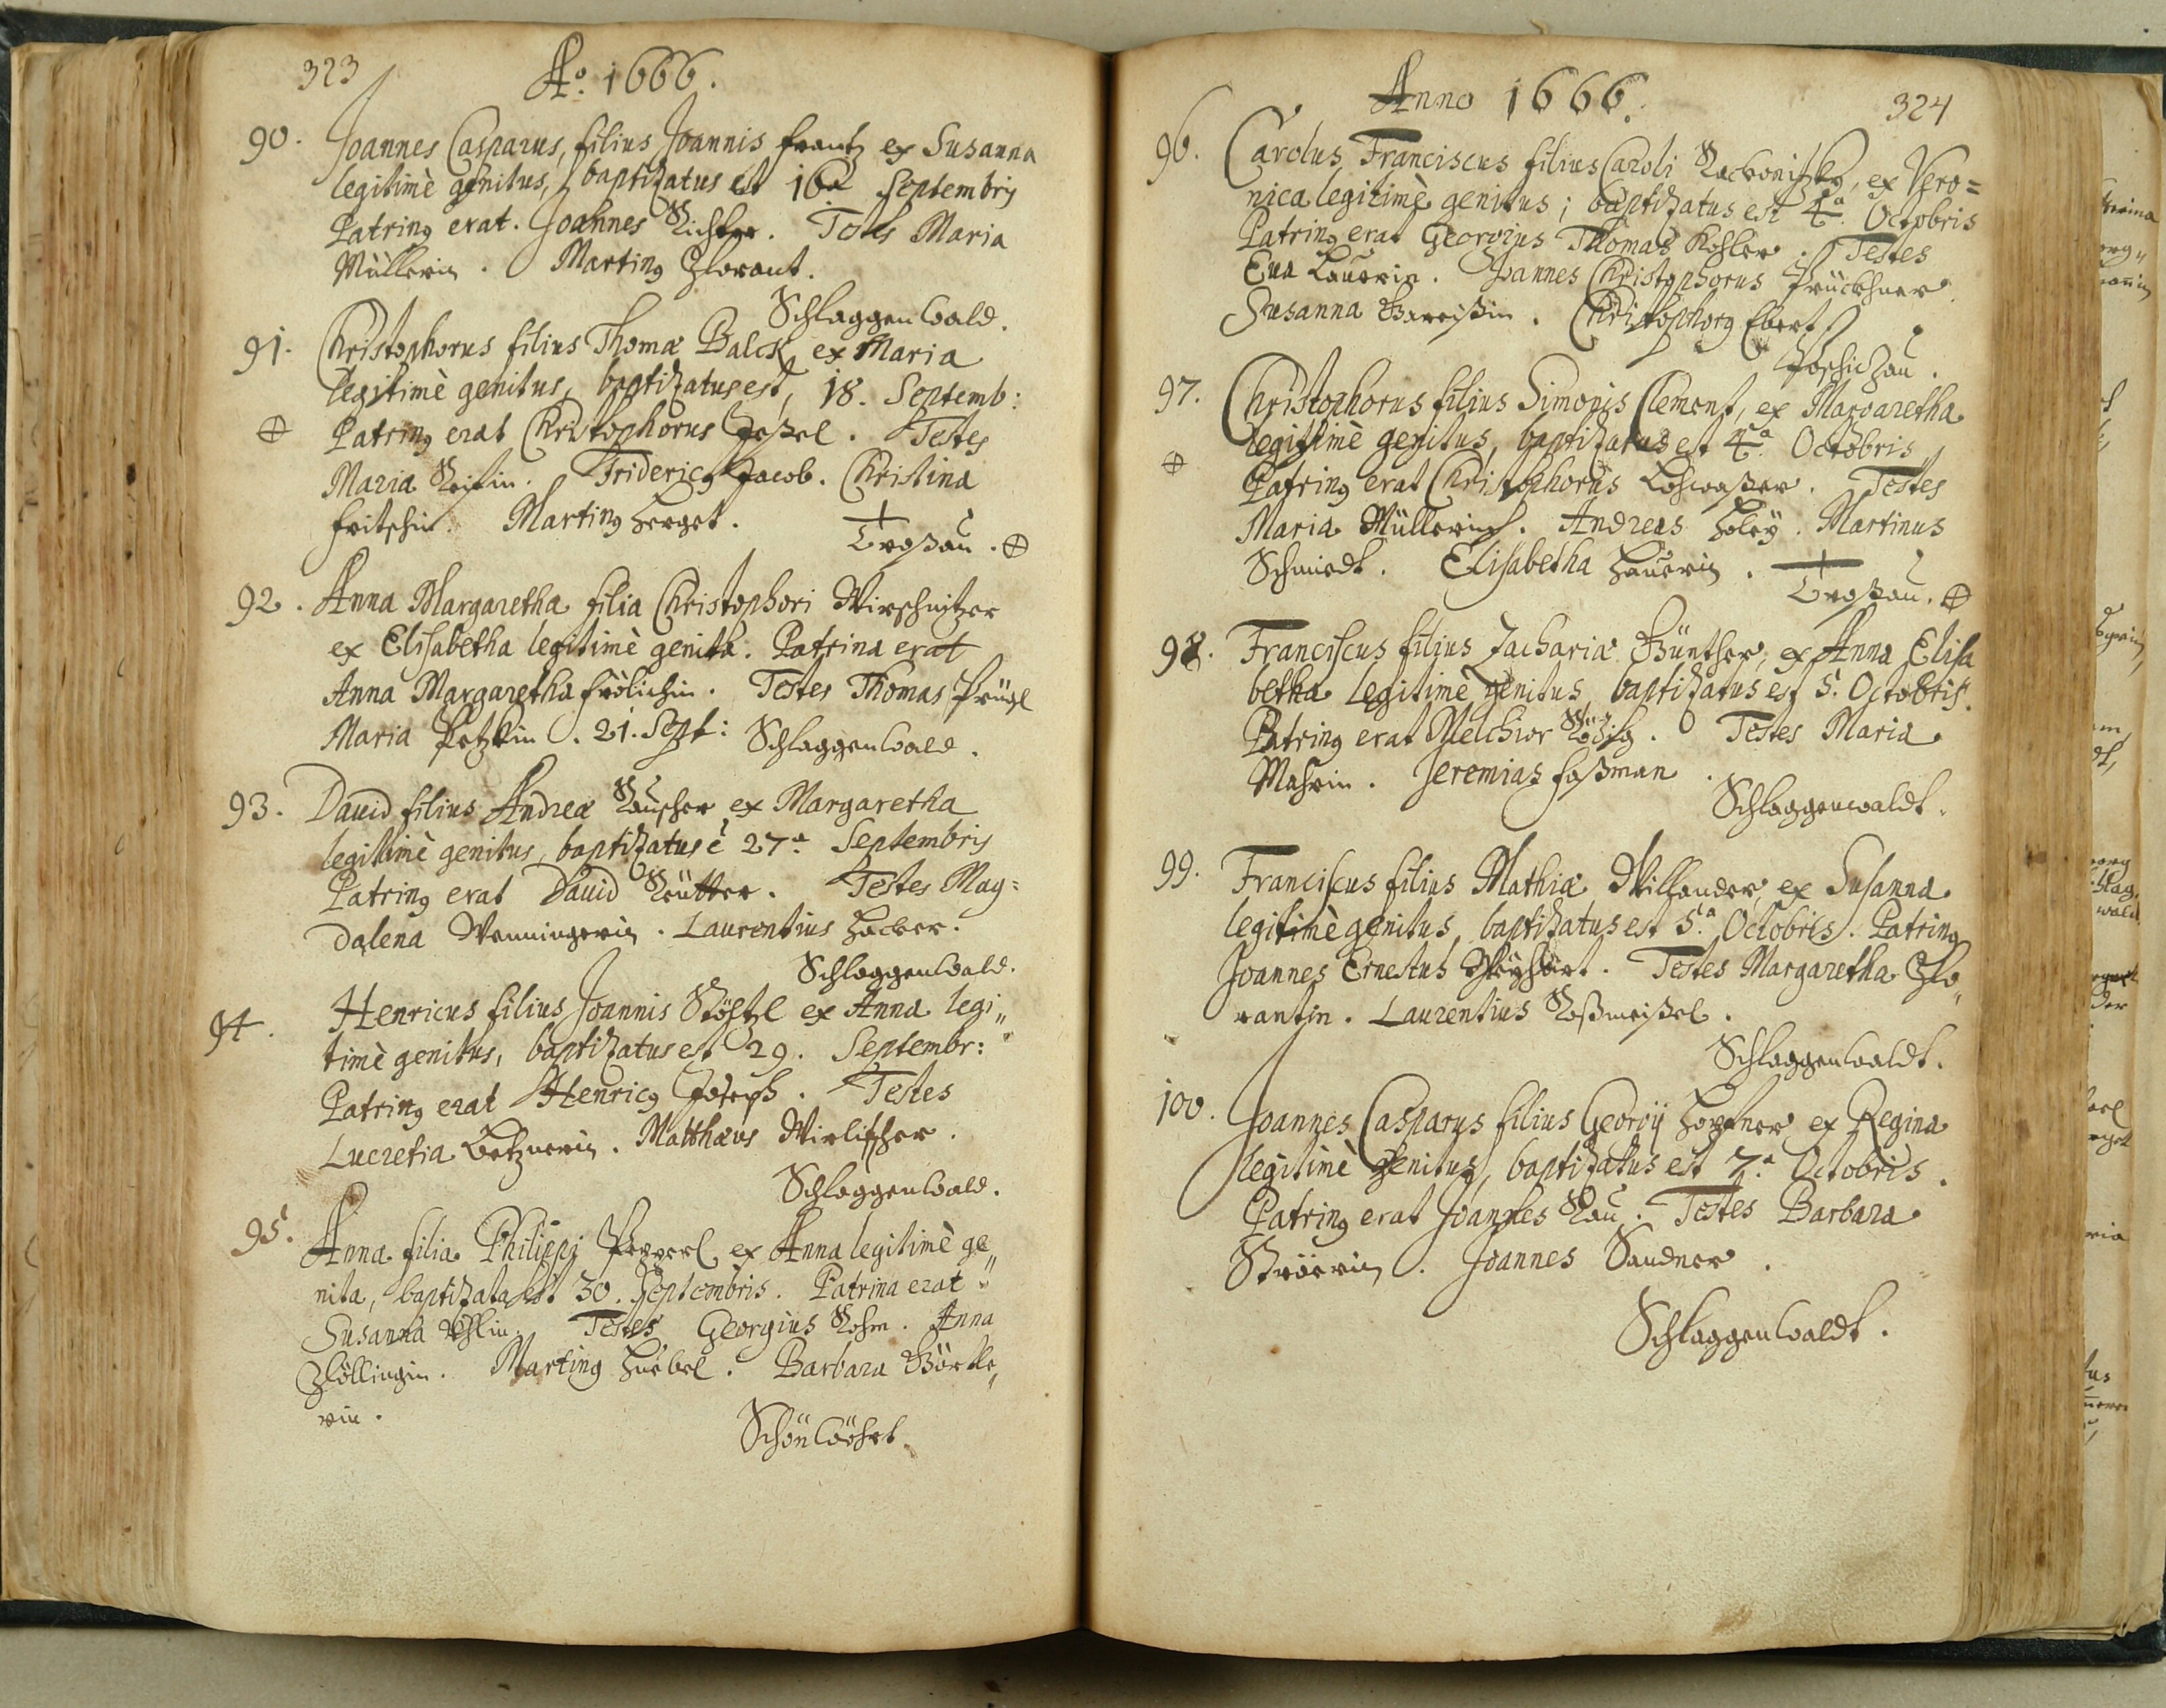 323
Ao. 1666.
90. Joannes Casparus, filius Joannis Frantz ex Susanna
legitimè genitus, baptizatus est 16a Septembris
Patrinꝰ erat. Joannes Richter. Testes Maria
Müllerin. Martinꝰ Florant.
Schlaggenwald.
91. Christophorus filius Thomæ Balck, ex Maria
legitimè genitus, baptizatus est, 18. Septemb:
⊕ Patrinꝰ erat Christophorus Testes
Maria Fridericꝰ Jacob. Christina
Fritschin. Martinꝰ Herget.
Troßau. ⊕
92. Anna Margaretha filia Christophori Wirschnitzer
ex Elisabetha legitimè genita. Patrina erat
Anna Margaretha Frölichin. Testes Thomas Prügl
Maria Petzlin. 21. Sept: Schlaggenwald.
93. Dauid filius Andreæ Rauscher ex Margaretha
legitimè genitus, baptizatus ē 27a Septembris
Patrinꝰ erat Dauid Reütter. Testes Mag=
dalena Wenningerin. Laurentius Hacker.
Schlaggenwald.
94. Henricus filius Joannis Stöhtzl ex Anna legi„
timè genitus, baptizatus est 29. Septembr:
Patrinꝰ erat Henricꝰ Joseph. Testes
Lucretia Betznerin. Matthæus Wirlischer.
Schlaggenwald.
95. Anna filia Philippi ex Anna legitimè ge„
nita, baptizata est 30. Septembris. Patrina erat
Susanna Testes Georgius Rohm. Anna
Martinꝰ Huebel. Barbara Görtle„
rin.
Schönwöhrt.
Anno 1666.
324
96. Carolus Franciscus filius Caroli Rackonitzky, ex Vero=
nica legitimè genitus; baptizatus est 4a Octobris
Patrinꝰ erat Georgius Thomas Kohler. Testes
Eua Bauerin. Joannes Christophorus Prückhner.
Susanna Gareißin. Christophorꝰ Ebert
Poschizau.
97. Christophorus filius Simonis Clement, ex Margaretha
legitimè genitus, baptizatus est 4a Octobris
⊕ Patrinꝰ erat Christophorus Lohwaßer. Testes
Maria Müllerin. Andreas Holey. Martinus
Schmiedt. Elisabetha Hauerin.
Troßau. ⊕
98. Franciscus filius Zachariæ Günther, ex Anna Elisa
betha legitimè genitus baptizatus est 5. Octobris.
Patrinꝰ erat Melchior Testes Maria
Mahrin. Jeremias Faßman.
Schlaggenwaldt.
99. Franciscus filius Mathiæ Willander, ex Susanna
legitimè genitus, baptizatus est 5.a Octobris. Patrinꝰ
Joannes Ernestus Testes Margaretha Flo„
rantin. Laurentius Roßmeißel.
Schlaggenwaldt.
100. Joannes Casparus filius Georgij Hopfner ex Regina
legitimè genitus, baptizatus est 7.a Octobris.
Patrinꝰ erat Joannes Rau. Testes Barbara
Ströerin. Joannes Sandner.
Schlaggenwaldt.